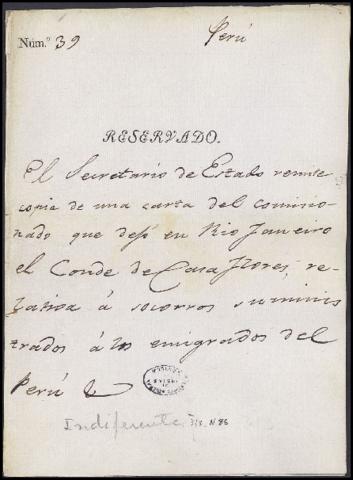 Perú
Núm.º 39
RESERVADO.
El Secretario de Estado remite
copia de una carta del comisio-
nado que dejó en Rio Janeiro
el Conde de Casa Flores, re-
lativa á socorros suminis
trados á los emigrados del
Perú
Indiferente